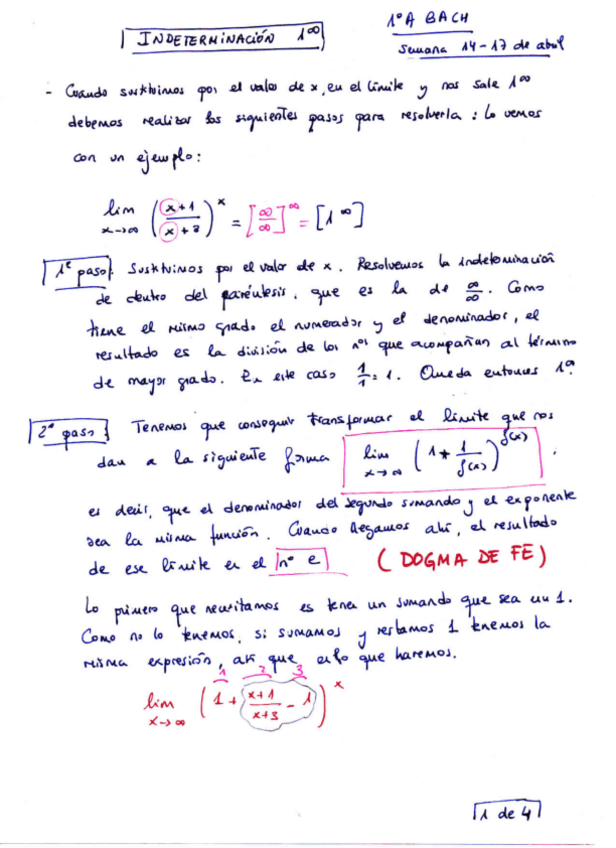 INDETERMINACIÓN 1^∞
1º A BACH
Semana 14-17 de abril
- Cuando sustituimos por el valor de x, en el límite y nos sale 1^∞
debemos realizar los siguientes pasos para resolverla: Lo vemos
con un ejemplo:
lim x→∞ ((x+1)/(x+3))^x = [∞/∞]^∞ = [1^∞]
1er paso Sustituimos por el valor de x. Resolvemos la indeterminación
de dentro del paréntesis, que es la de ∞/∞. Como
tiene el mismo grado el numerador y el denominador, el
resultado es la división de los nºs que acompañan al término
de mayor grado. En este caso 1/1 = 1. Queda entonces 1^∞.
2º paso Tenemos que conseguir transformar el límite que nos
dan a la siguiente forma lim x→∞ (1 + 1/f(x))^f(x).
es decir, que el denominador del segundo sumando y el exponente
sea la misma función. Cuando llegamos ahí, el resultado
de ese límite es el nº e (DOGMA DE FE)
Lo primero que necesitamos es tener un sumando que sea un 1.
Como no lo tenemos, si sumamos y restamos 1 tenemos la
misma expresión, así que es lo que haremos.
1 2 3
lim x→∞ (1 + (x+1)/(x+3) - 1)^x
1 de 4